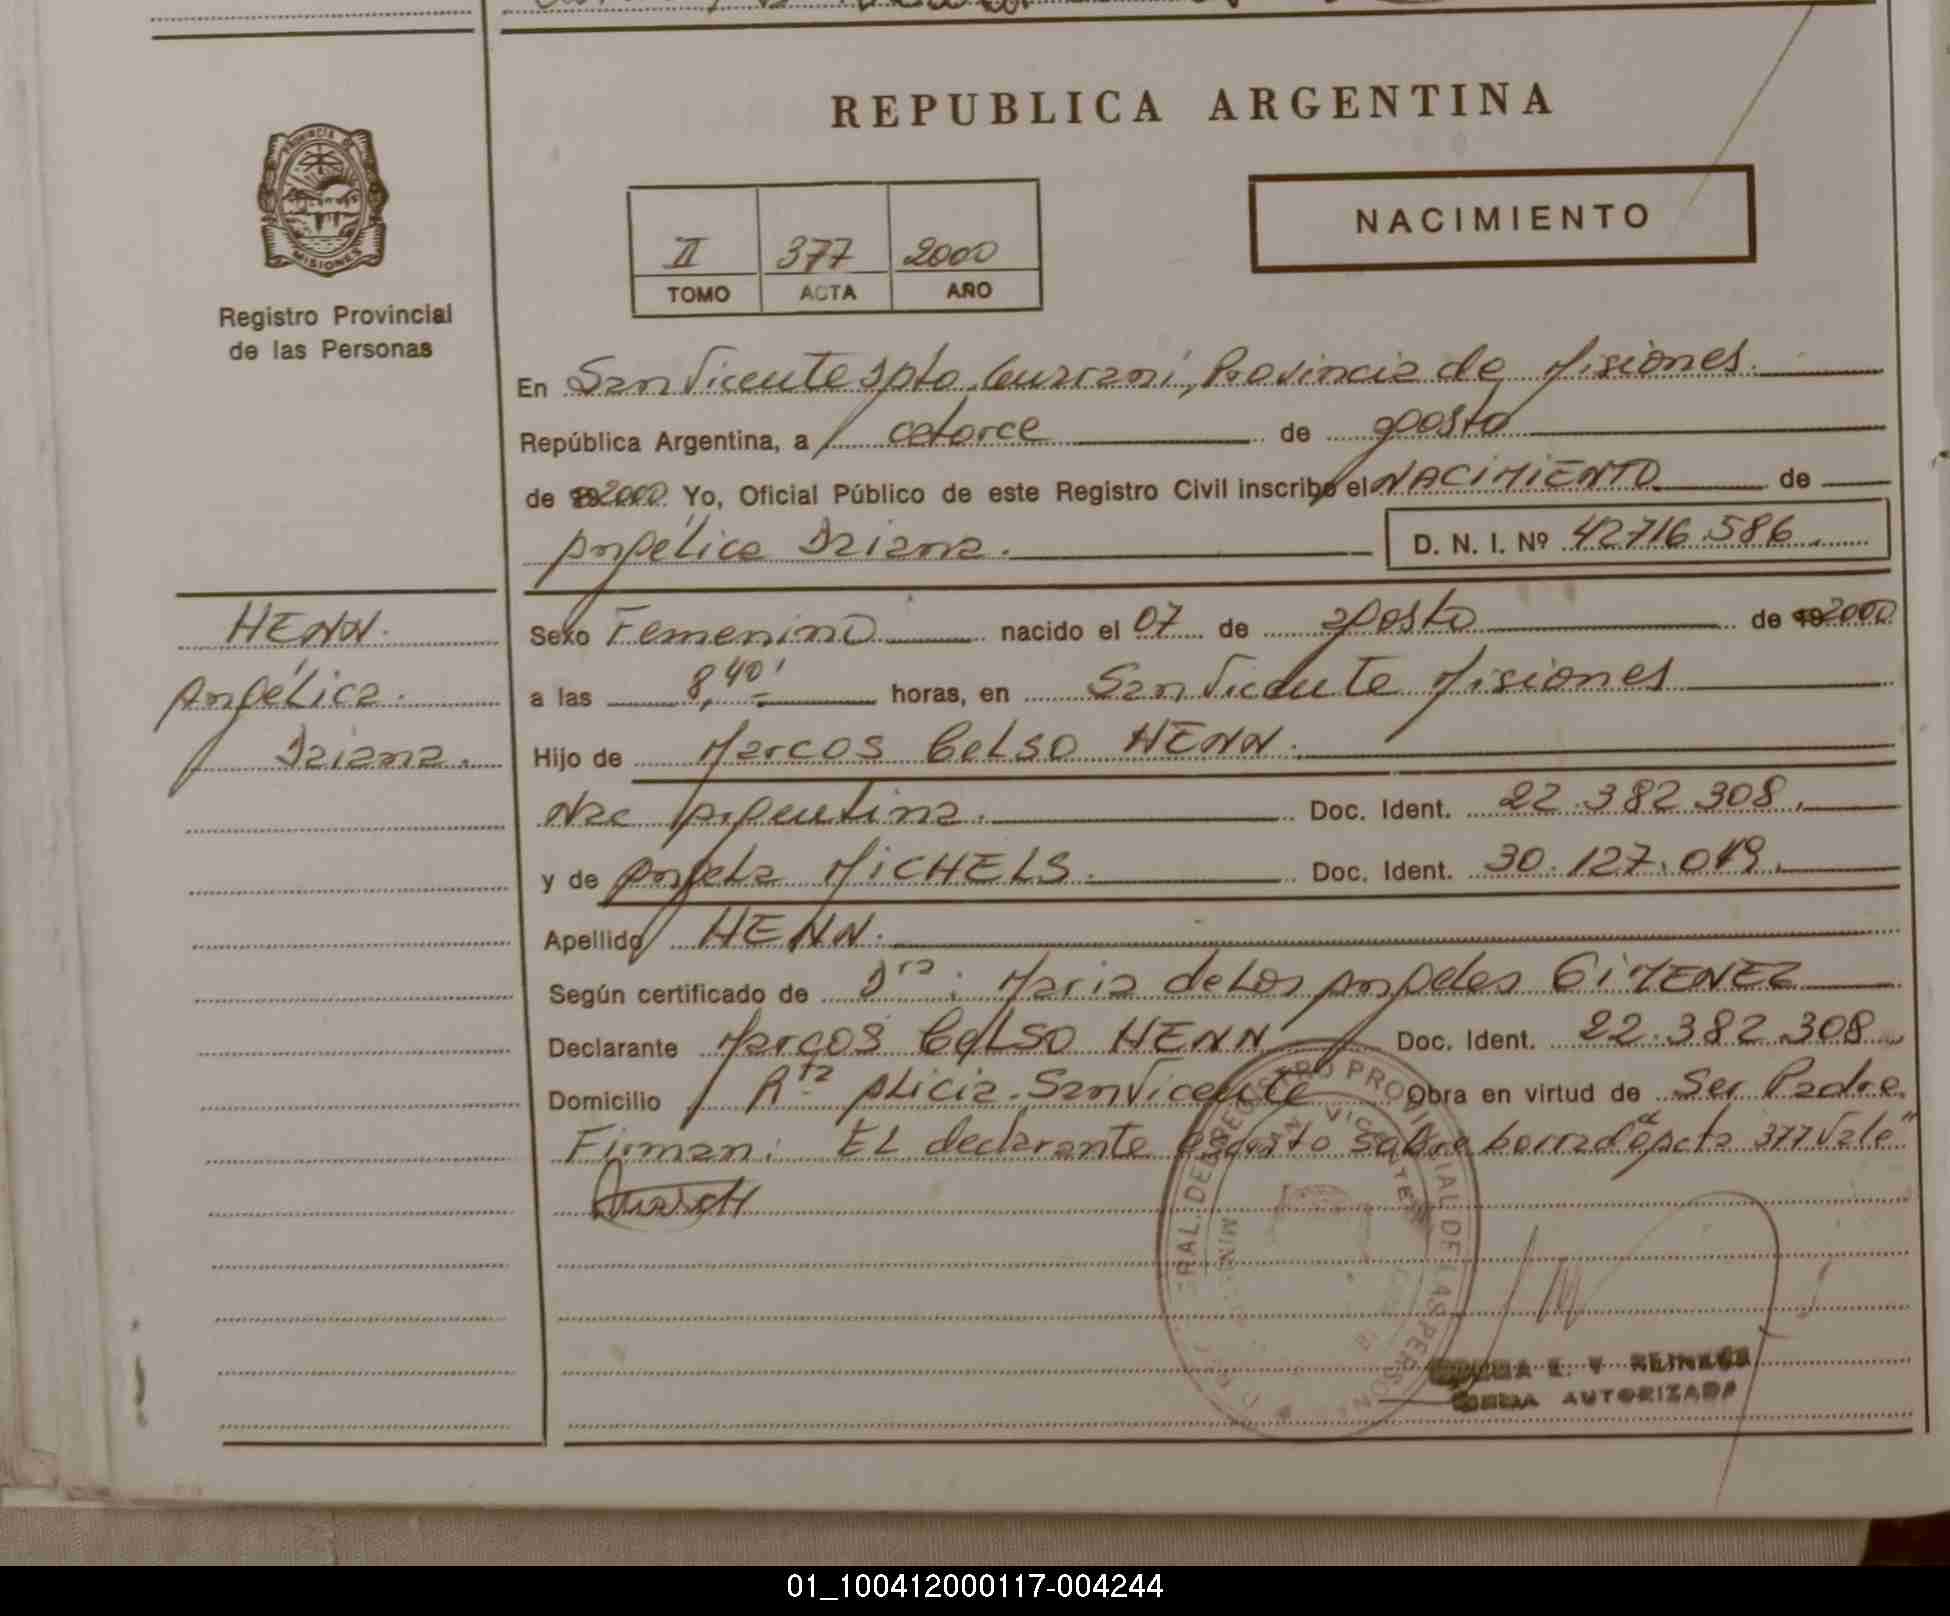 REPUBLICA ARGENTINA
PROVINCIA DE MISIONES
Registro Provincial
de las Personas
II 377 2000
TOMO ACTA AÑO
NACIMIENTO
En San Vicente Dpto. Guaraní, Provincia de Misiones.
República Argentina, a catorce de agosto
de 2000. Yo, Oficial Público de este Registro Civil inscribo el NACIMIENTO de
Angélica Daiana. D. N. I. Nº 42716.586
HENN.
Angélica.
Daiana.
Sexo Femenino nacido el 07 de agosto de 2000
a las 8,40' horas, en San Vicente Misiones
Hijo de Marcos Celso HENN.
Nac Argentina. Doc. Ident. 22.382.308.
y de Angela MICHELS. Doc. Ident. 30.127.019.
Apellido HENN.
Según certificado de Dra: Maria de Los Angeles GIMENEZ
Declarante Marcos Celso HENN Doc. Ident. 22.382.308
Domicilio Rta Alicia. San Vicente Obra en virtud de Ser Padre.
Firman: EL declarante sobre borrado acta 377 Vale"
REGISTRO PROVINCIAL DE LAS PERSONAS
SAN VICENTE
E. V. REINEKE
AUTORIZADA
01_100412000117-004244